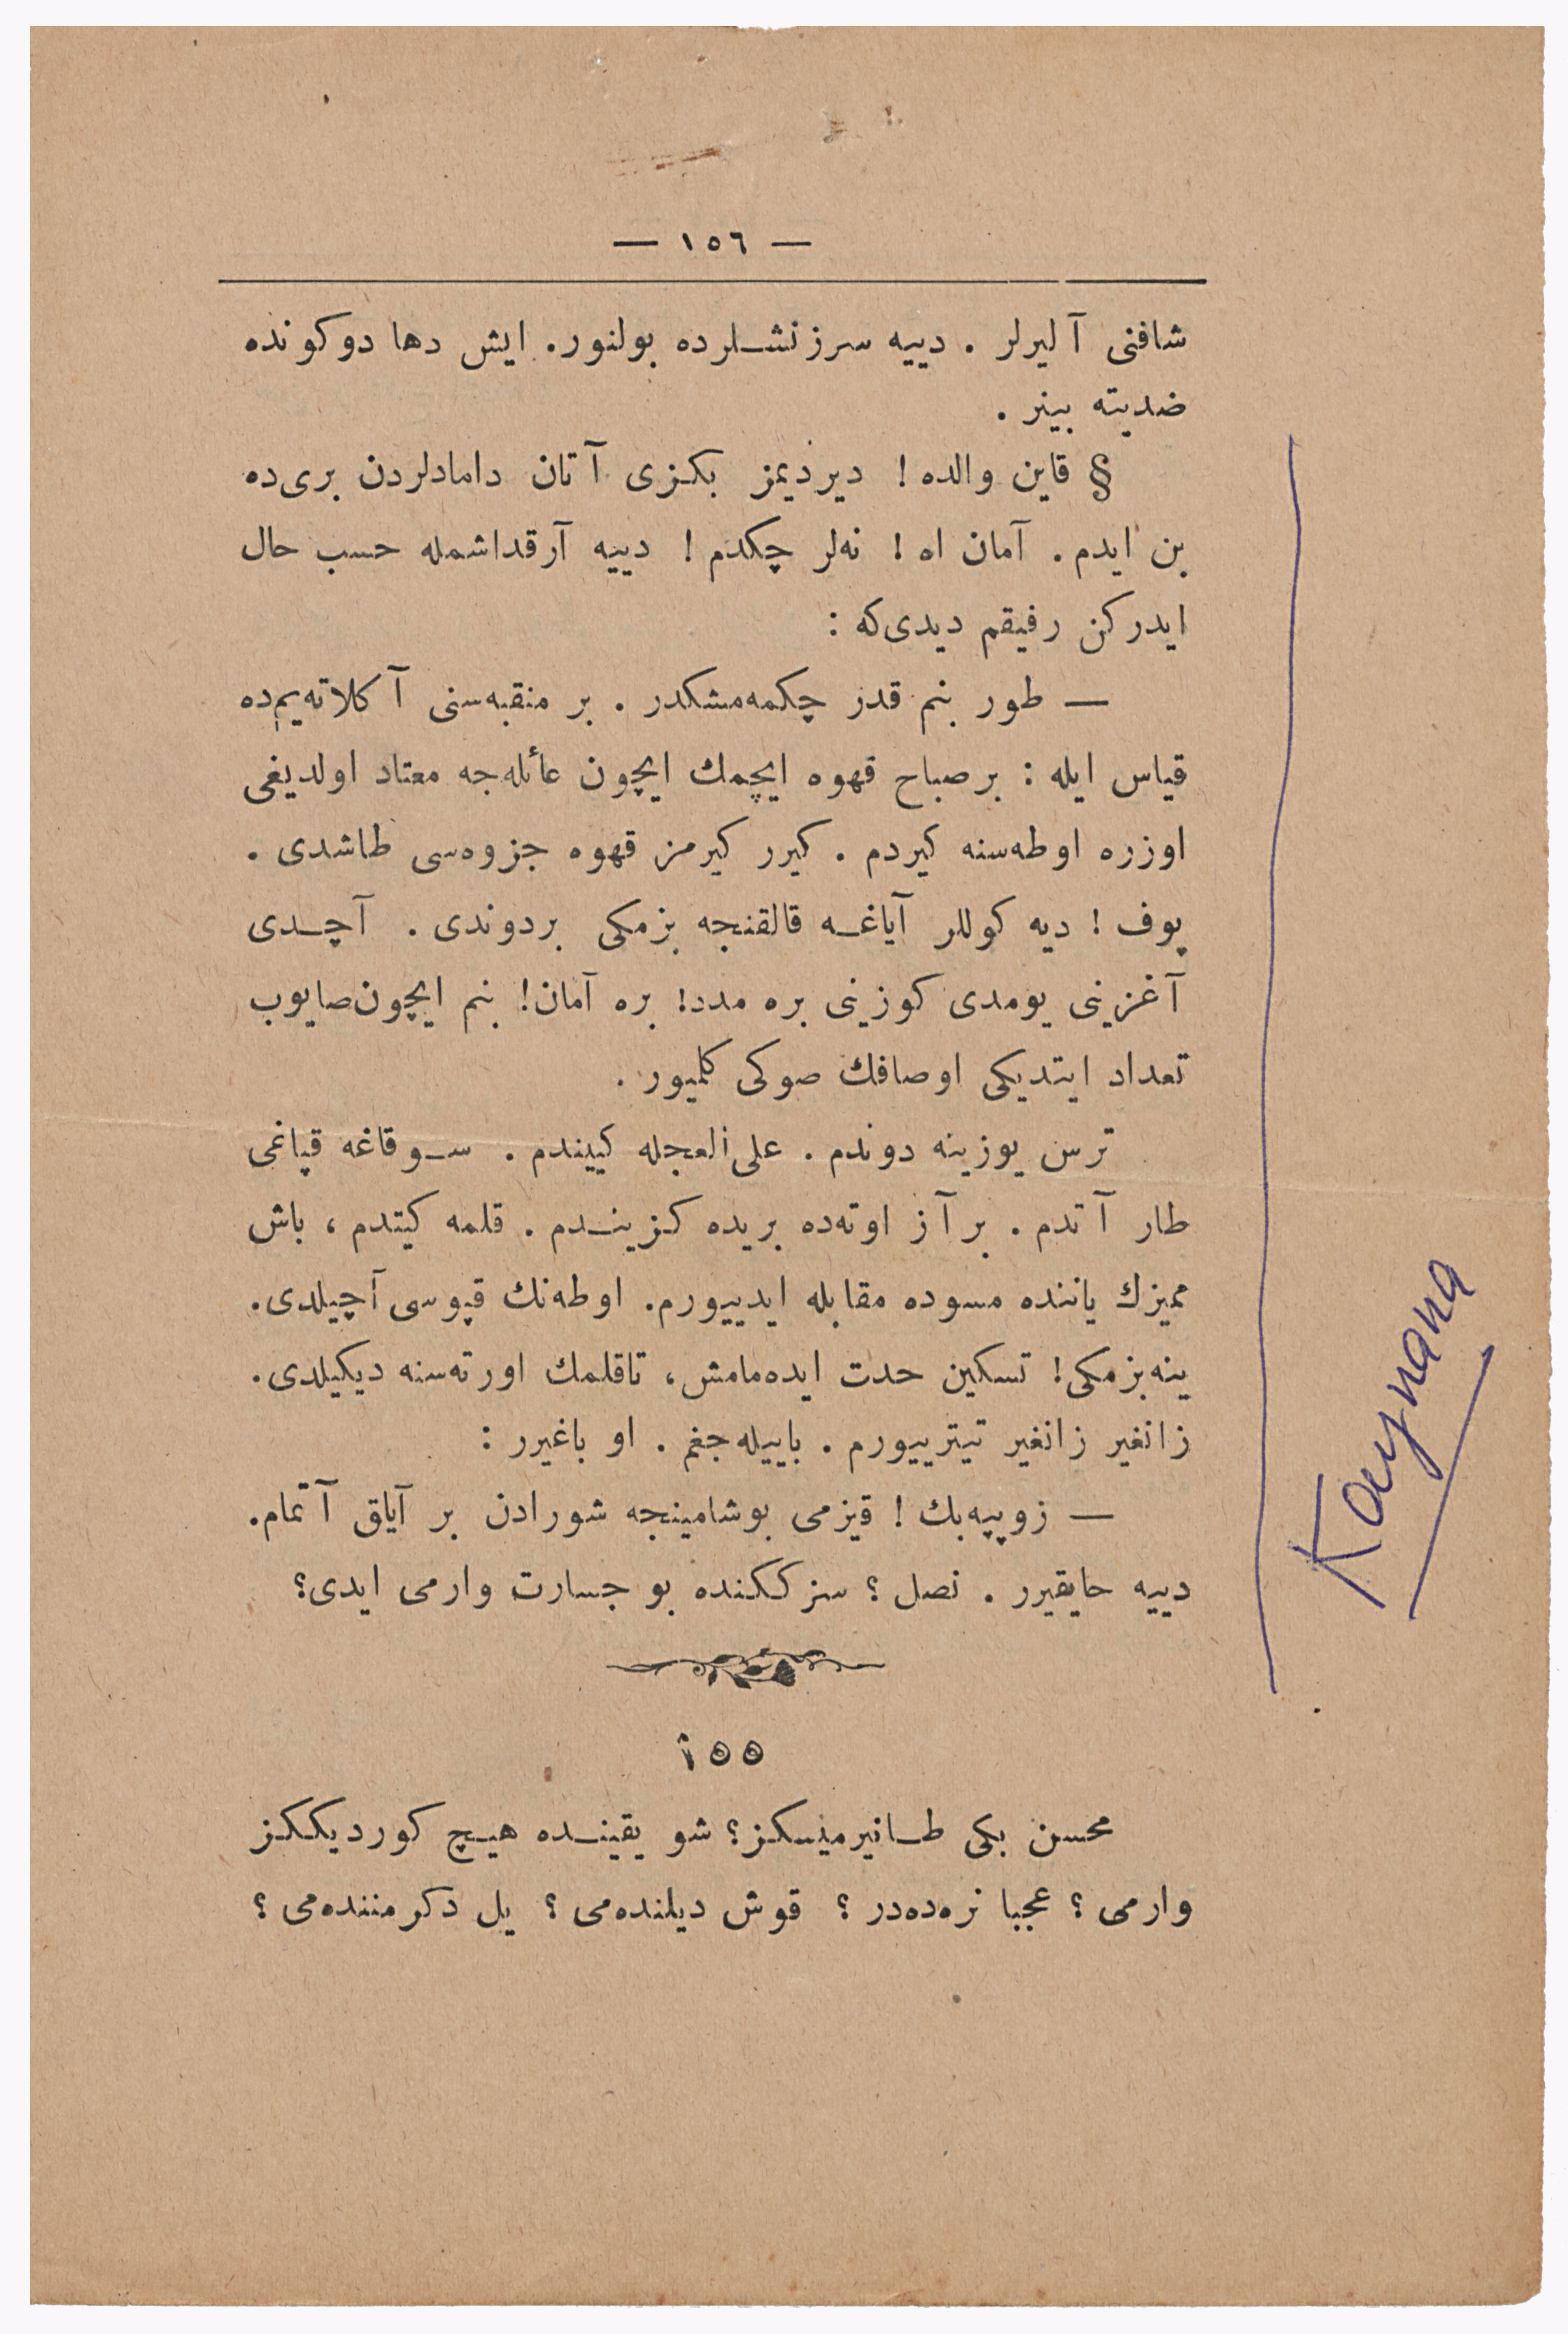 — ١٥٦ —
شافنی آلیرلر . دییه سرزنشلرده بولنور. ایش دها دوکونده
ضدیته بینر .
§ قاین والده ! دیردیمز بکزی آتان دامادلردن بری‌ده
بن ایدم . آمان اه ! نه‌لر چکدم ! دییه آرقداشمله حسب حال
ایدرکن رفیقم دیدی‌که :
— طور بنم قدر چکمه‌مشکدر . بر منقبه‌سنی آکلاته‌یم‌ده
قیاس ایله : بر صباح قهوه ایچمك ایچون عائله‌جه معتاد اولدیغی
اوزره اوطه‌سنه کیردم . کیرر کیرمز قهوه جزوه‌سی طاشدی .
پوف ! دیه کوللر آیاغه قالقنجه بزمکی بردوندی . آچدی
آغزینی یومدی کوزینی بره مدد! بره آمان! بنم ایچون‌صایوب
تعداد ایتدیکی اوصافك صوکی کلمیور .
ترس یوزینه دوندم . علی‌العجله کییندم . سوقاغه قپاغمی
طار آتدم . بر آز اوته‌ده بریده کزیندم . قلمه کیتدم ، باش
ممیزك یاننده مسوده مقابله ایدییورم. اوطه‌نك قپوسی آچیلدی.
ینه‌بزمکی! تسکین حدت ایده‌مامش، تاقلمك اورته‌سنه دیکیلدی.
زانغیر زانغیر تیترییورم . باییله‌جغم . او باغیرر :
— زوپپه‌بك ! قیزمی بوشامینجه شورادن بر آیاق آتمام.
دییه حایقیرر . نصل ؟ سزککنده بو جسارت وارمی ایدی؟
١٥٥
محسن بکی طانیرمیسکز؟ شو یقینده هیچ کوردیککز
وارمی ؟ عجبا نره‌ده‌در ؟ قوش دیلنده‌می ؟ یل دکرمننده‌می ؟
Kaynana